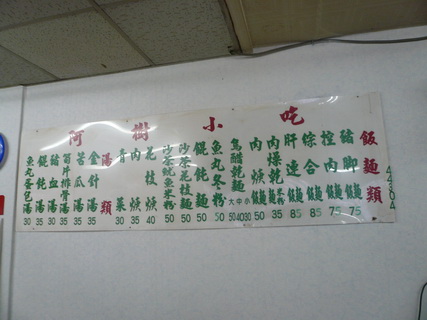 阿樹小吃
飯麵類
豬脚飯麵 75
控肉飯 75
綜合飯麵 85
肝連飯麵 85
肉燥乾麵 35
肉焿飯麵 50
烏醋乾麵 大50 中40 小30
魚丸冬粉 50
餛飩麵 50
沙茶花枝麵 50
沙茶魷魚米粉 50
花枝焿 40
肉焿 35
青菜 30
湯類
金針湯 35
苦瓜湯 35
筍片排骨湯 35
豬血湯 35
餛飩湯 35
魚丸蛋包湯 30
44304